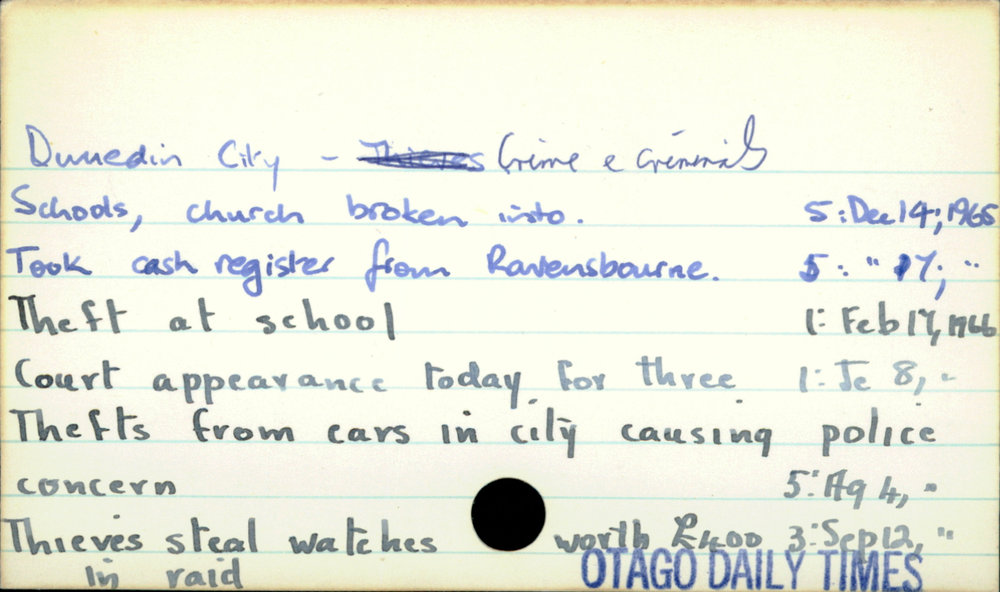 Dunedin City - Thieves Crime & Criminals
Schools, church broken into. 5: Dec 14; 1965
Took cash register from Ravensbourne. 5: " 17; "
Theft at school 1: Feb 17, 1966
Court appearance today for three 1: Je 8, "
Thefts from cars in city causing police
concern 5: Ag 4, "
Thieves steal watches worth £400 3: Sep 12, "
in raid
OTAGO DAILY TIMES